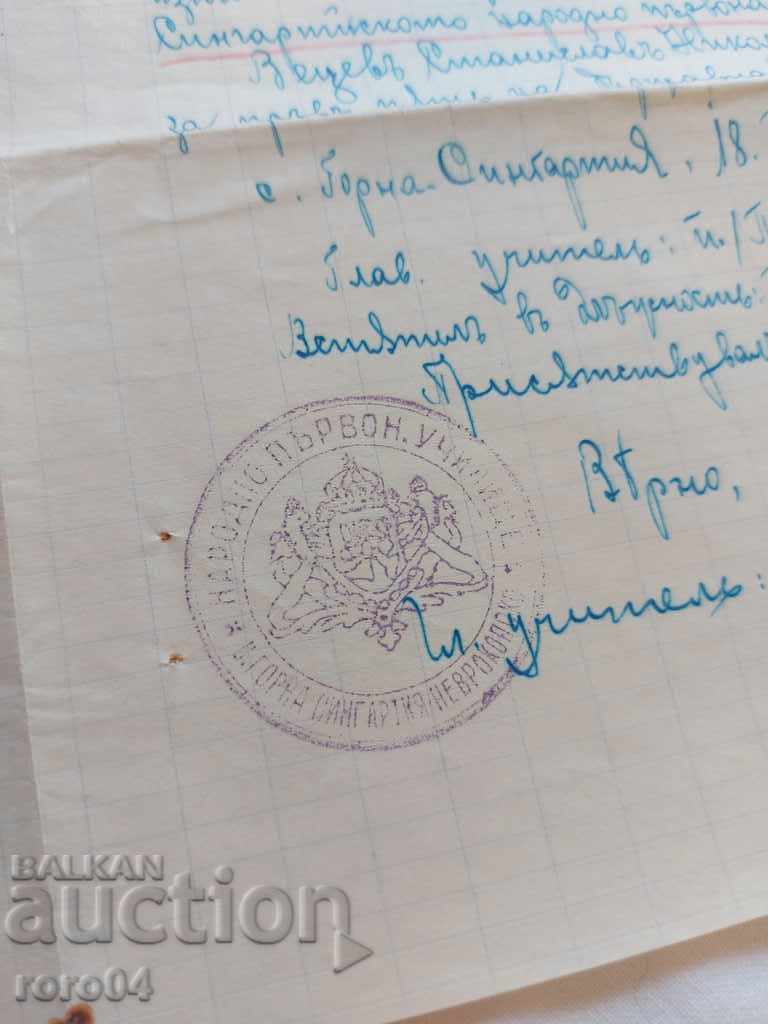 Сингартийското народно първона
Вецевъ Станиславъ Никол
за
с. Горна-Сингартия, 18.
Глав. учитель: п./П
Встѫпилъ въ длъжность:
Присѫтствувал
Вѣрно,
Гл. учитель:
* НАРОДНО ПЪРВОН. УЧИЛИЩЕ *
С. ГОРНА СИНГАРТИЯ/НЕВРОКОПСКО
BALKAN
auction
roro04